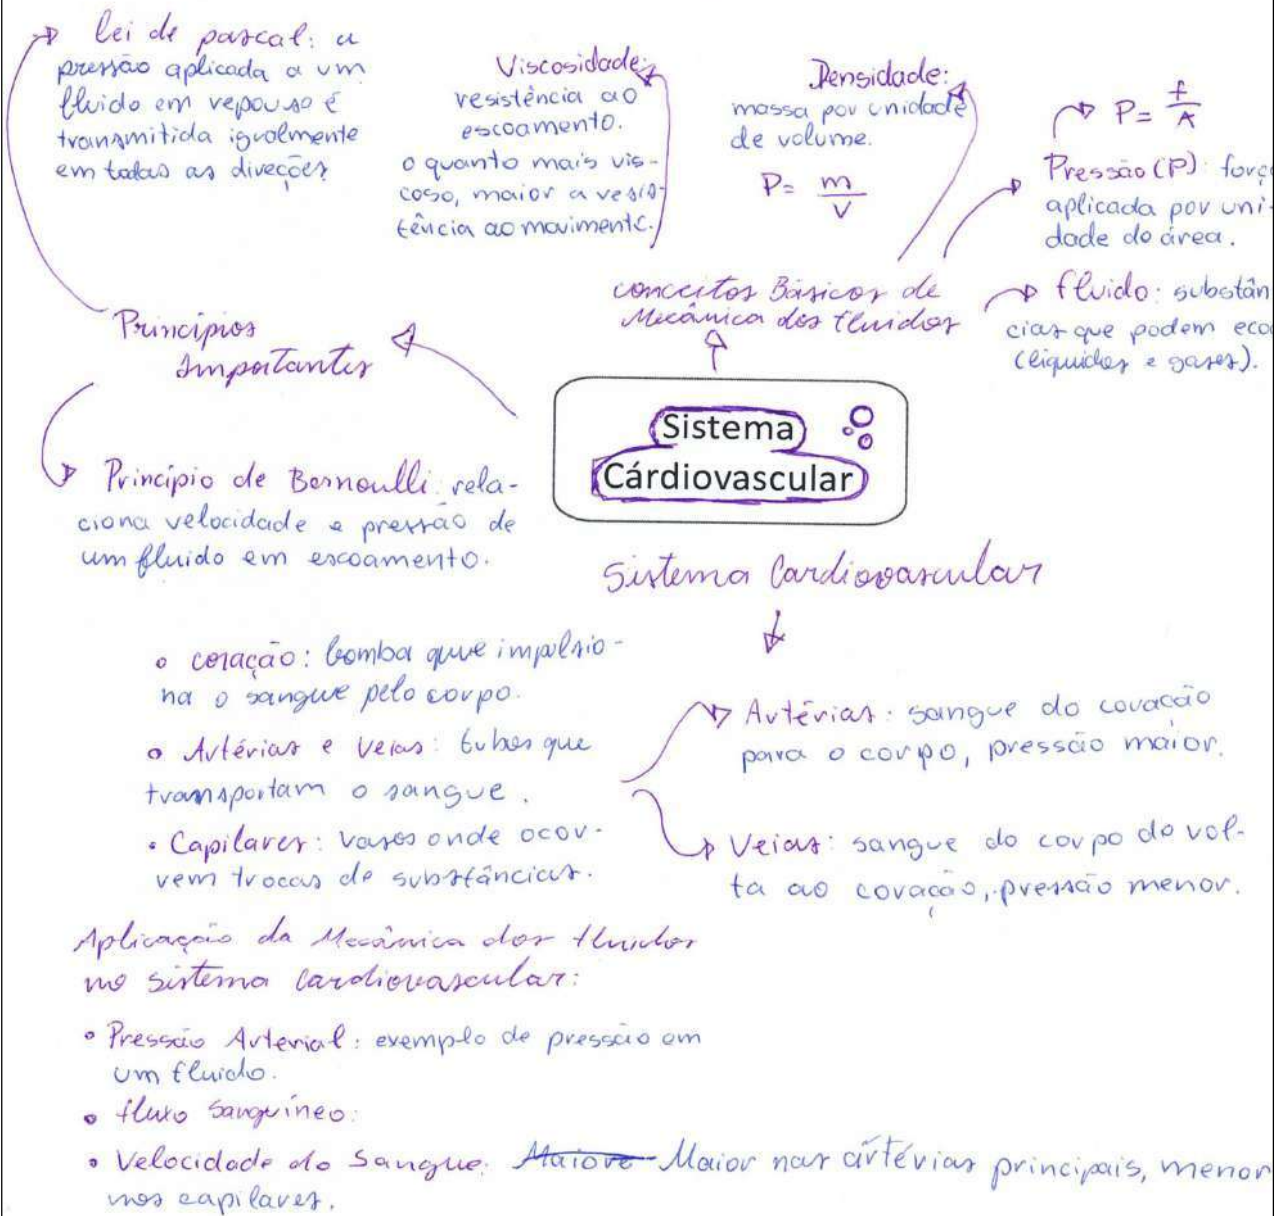 Lei de pascal: a
pressão aplicada a um
fluido em repouso é
transmitida igualmente
em todas as direções
Viscosidade:
resistência ao
escoamento.
o quanto mais vis-
coso, maior a resis-
tência ao movimento.
Densidade:
massa por unidade
de volume.
P= m/V
P= f/A
Pressão (P): força
aplicada por uni-
dade de área.
fluido: substân
cias que podem eco
(líquidos e gases).
conceitos Básicos de
Mecânica dos fluidos
Princípios
Importantes
Sistema
Cárdiovascular
Princípio de Bernoulli: rela-
ciona velocidade e pressão de
um fluido em escoamento.
Sistema Cardiovascular
coração: bomba que impulsio-
na o sangue pelo corpo.
Artérias e Veias: tubos que
transportam o sangue.
Capilares: vasos onde ocor-
rem trocas de substâncias.
Artérias: sangue do coração
para o corpo, pressão maior.
Veias: sangue do corpo de vol-
ta ao coração, pressão menor.
Aplicação da Mecânica dos fluidos
no sistema cardiovascular:
• Pressão Arterial: exemplo de pressão em
um fluido.
• fluxo Sanguíneo:
• Velocidade do Sangue: Maiore Maior nas artérias principais, menor
nos capilares.